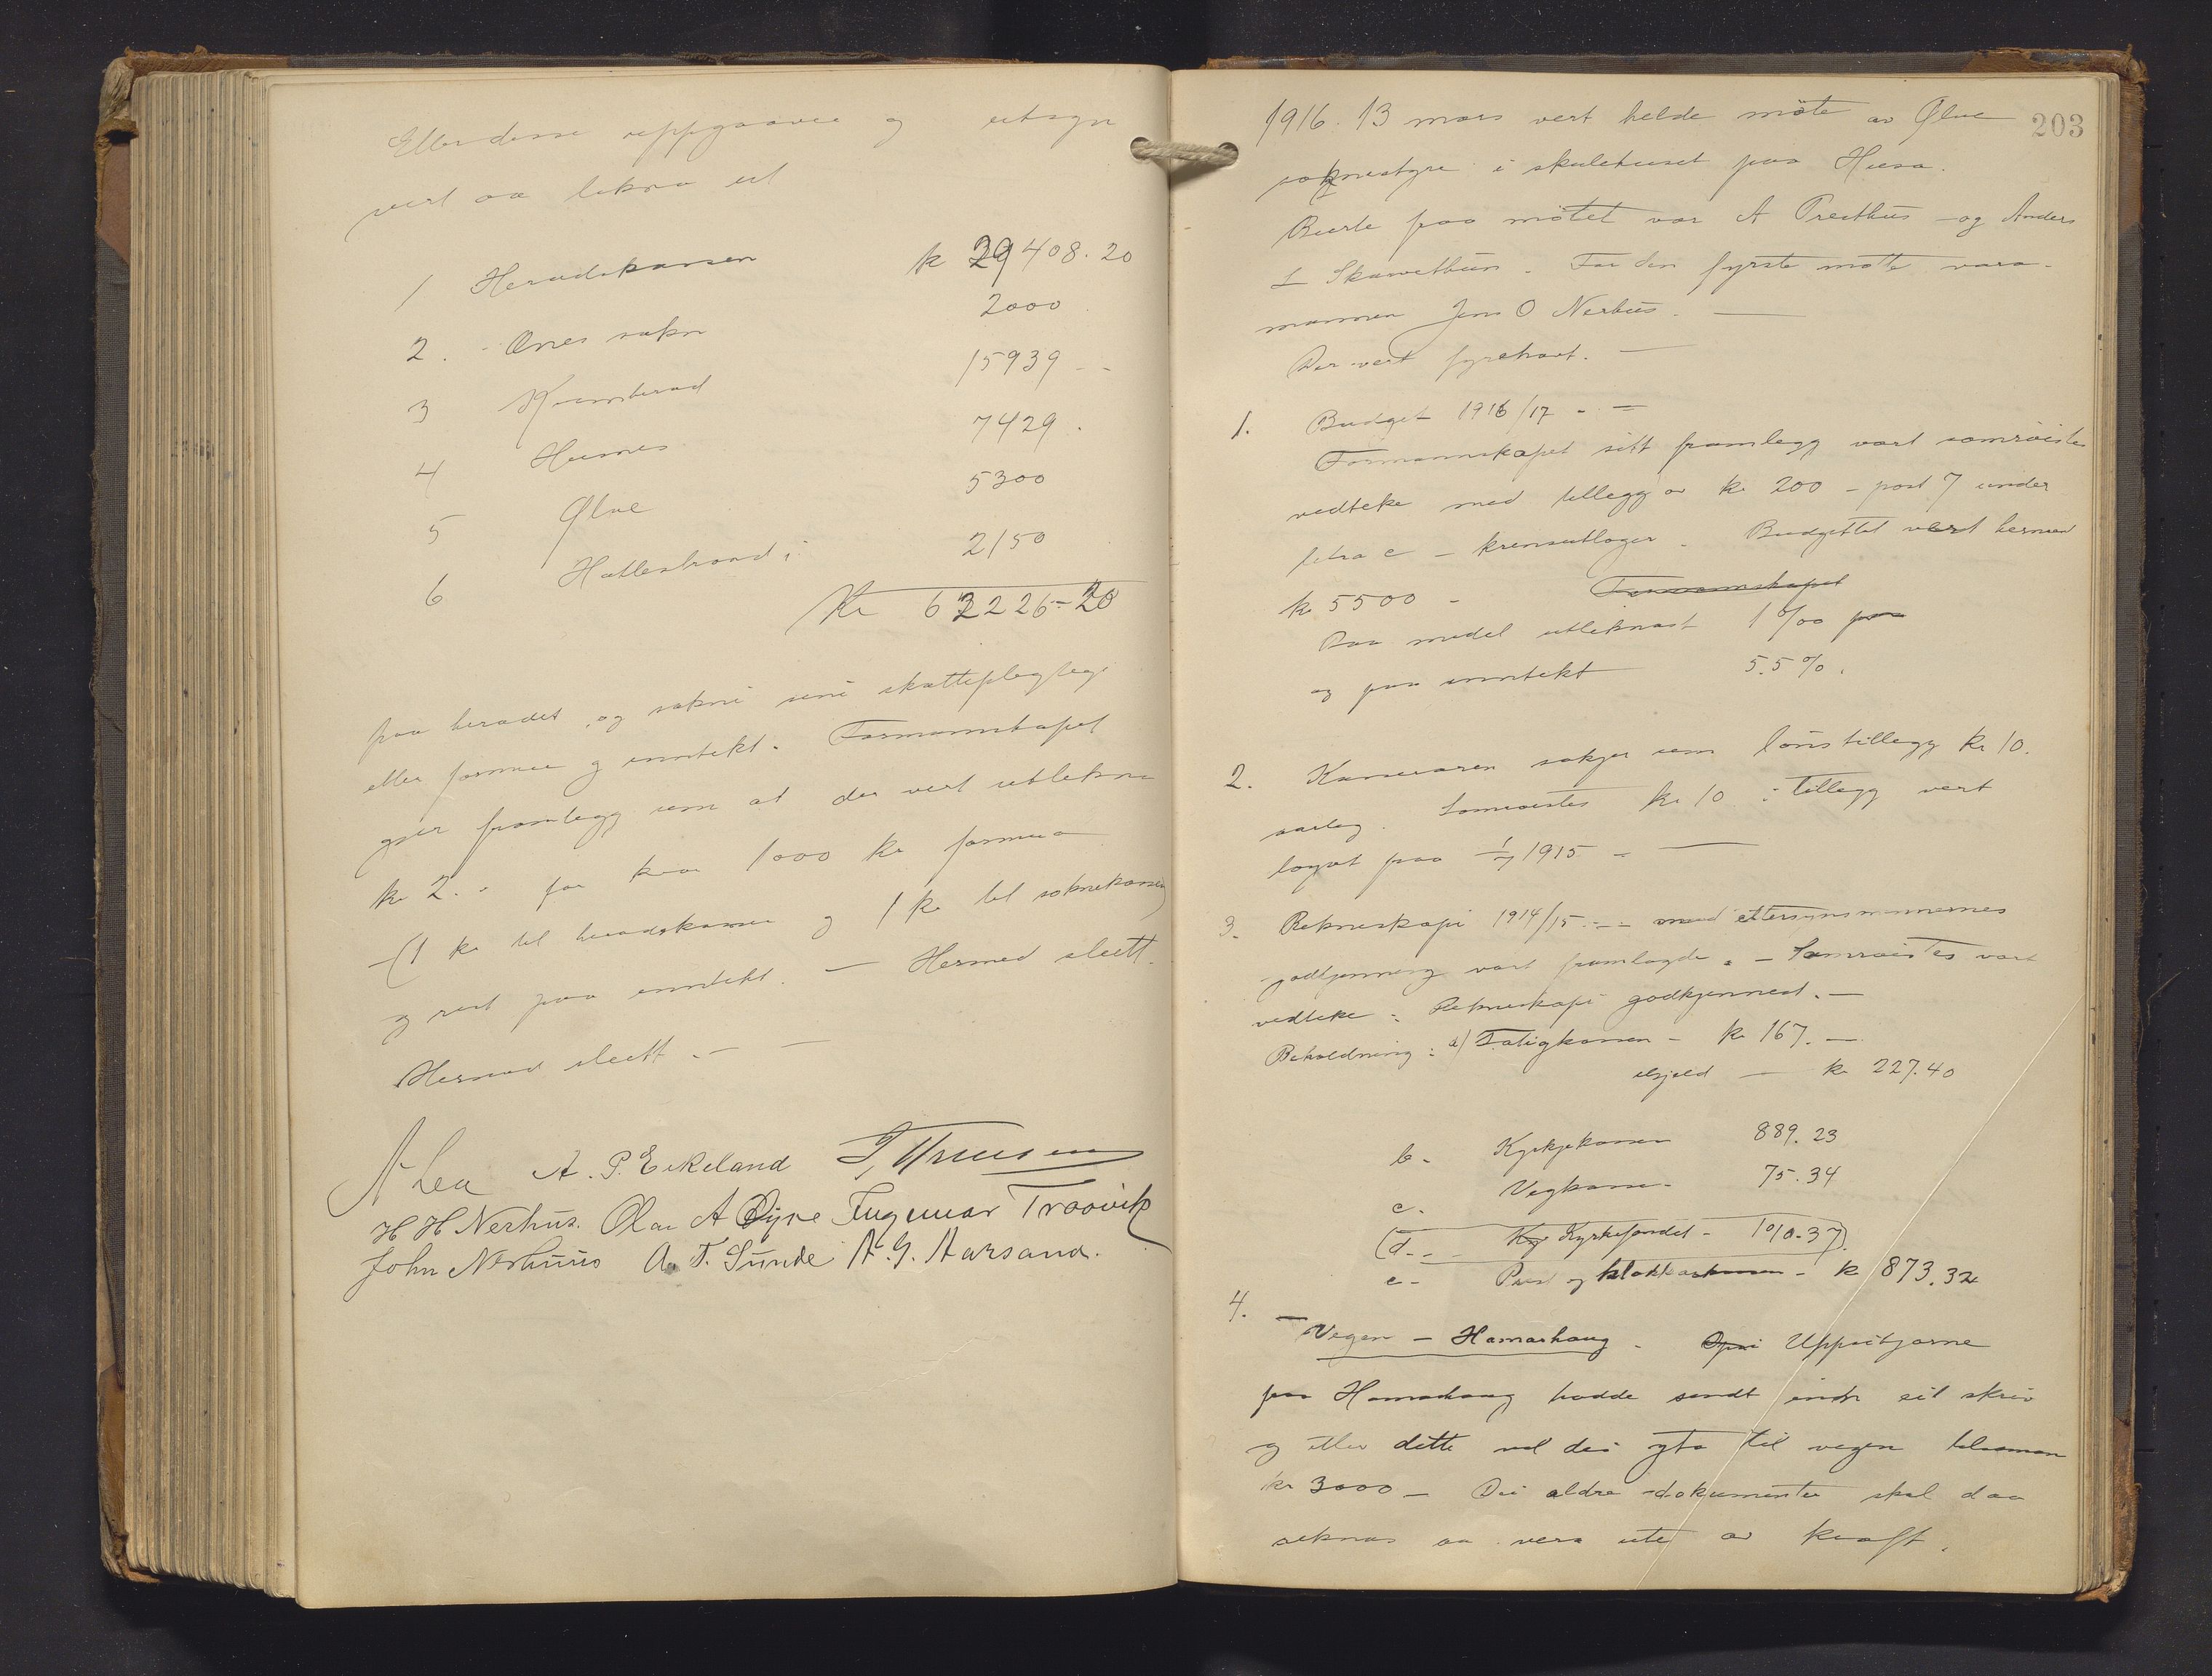 Etter desse uppgaavor og utsegn
vert aa likna ut
1 Heradskassen k 29408.20
2. Ænes sokn 2000
3 Kvinnherad 15939 --
4 Husnes 7429.
5 Ølve 5300
6 Hatlestrand i 2150
Kr 62226-20
paa heradet og sokni sine skatteplegtege
etter formue og inntekt. Formannskapet
gjer framlegg um at der vert utlikna
kr 2.- for kvar 1000 kr formua
(1 kr til heradskassa og 1 kr til soknekassen)
og rest paa inntekt. — Hermed slutt.
Hermed slutt. — —
A Lea A. P. Eikeland
H H Nerhus. Ola A Øyre Ingemar Traavik
John Nerhuus A. T. Sunde A. G. Aarsand.
203
1916. 13 mars vert helde møte av Ølve
soknestyre i skulehuset paa Husa.
Burte paa møtet var A Presthus og Anders
L Skarvethun. For den fyrste møtte vara-
mannen Jens O Nerhus. —
Der vart fyrehavt. —
1. Budget 1916/17 - =
Formannskapet sitt framlegg vart samrøistes
vedteke med tillegg av kr 200 - post 7 under
litra c - krinsutlogor. Budgettet vert hermed
kr 5500 - Formannskapet
Paa midel utliknast 1 0/00 paa
og paa inntekt 5.5%.
2. Kasseraren søkjer um lønstillegg kr 10.
aarleg. Samrøistes kr 10 i tillegg vert
løyvt paa 1/7 1915 - —
3. Rekneskapi 1914/15 -:- med ettersynsmennernes
godkjenning vart framlagde. - Samrøistes vart
vedteke: Rekneskapi godkjennest. —
Behaldning: a) Fatigkassen - kr 167. —
utgjeld — kr 227.40
b - Kyrkjekassen 889.23
c. Vegkassa - 75.34
(d. - - Ky Kyrkjefondet - 1010.37)
e - Prest og klokkarkassen - kr 873.32
4. — Vegen - Hamarhaug. Opsi Uppsitjarne
paa Hamarhaug hadde sendt inn eit skriv
og etter dette vil dei yta til vegen tilsaman
kr 3000 - Dei eldre dokumenter skal daa
reknas aa vera ute av kraft.